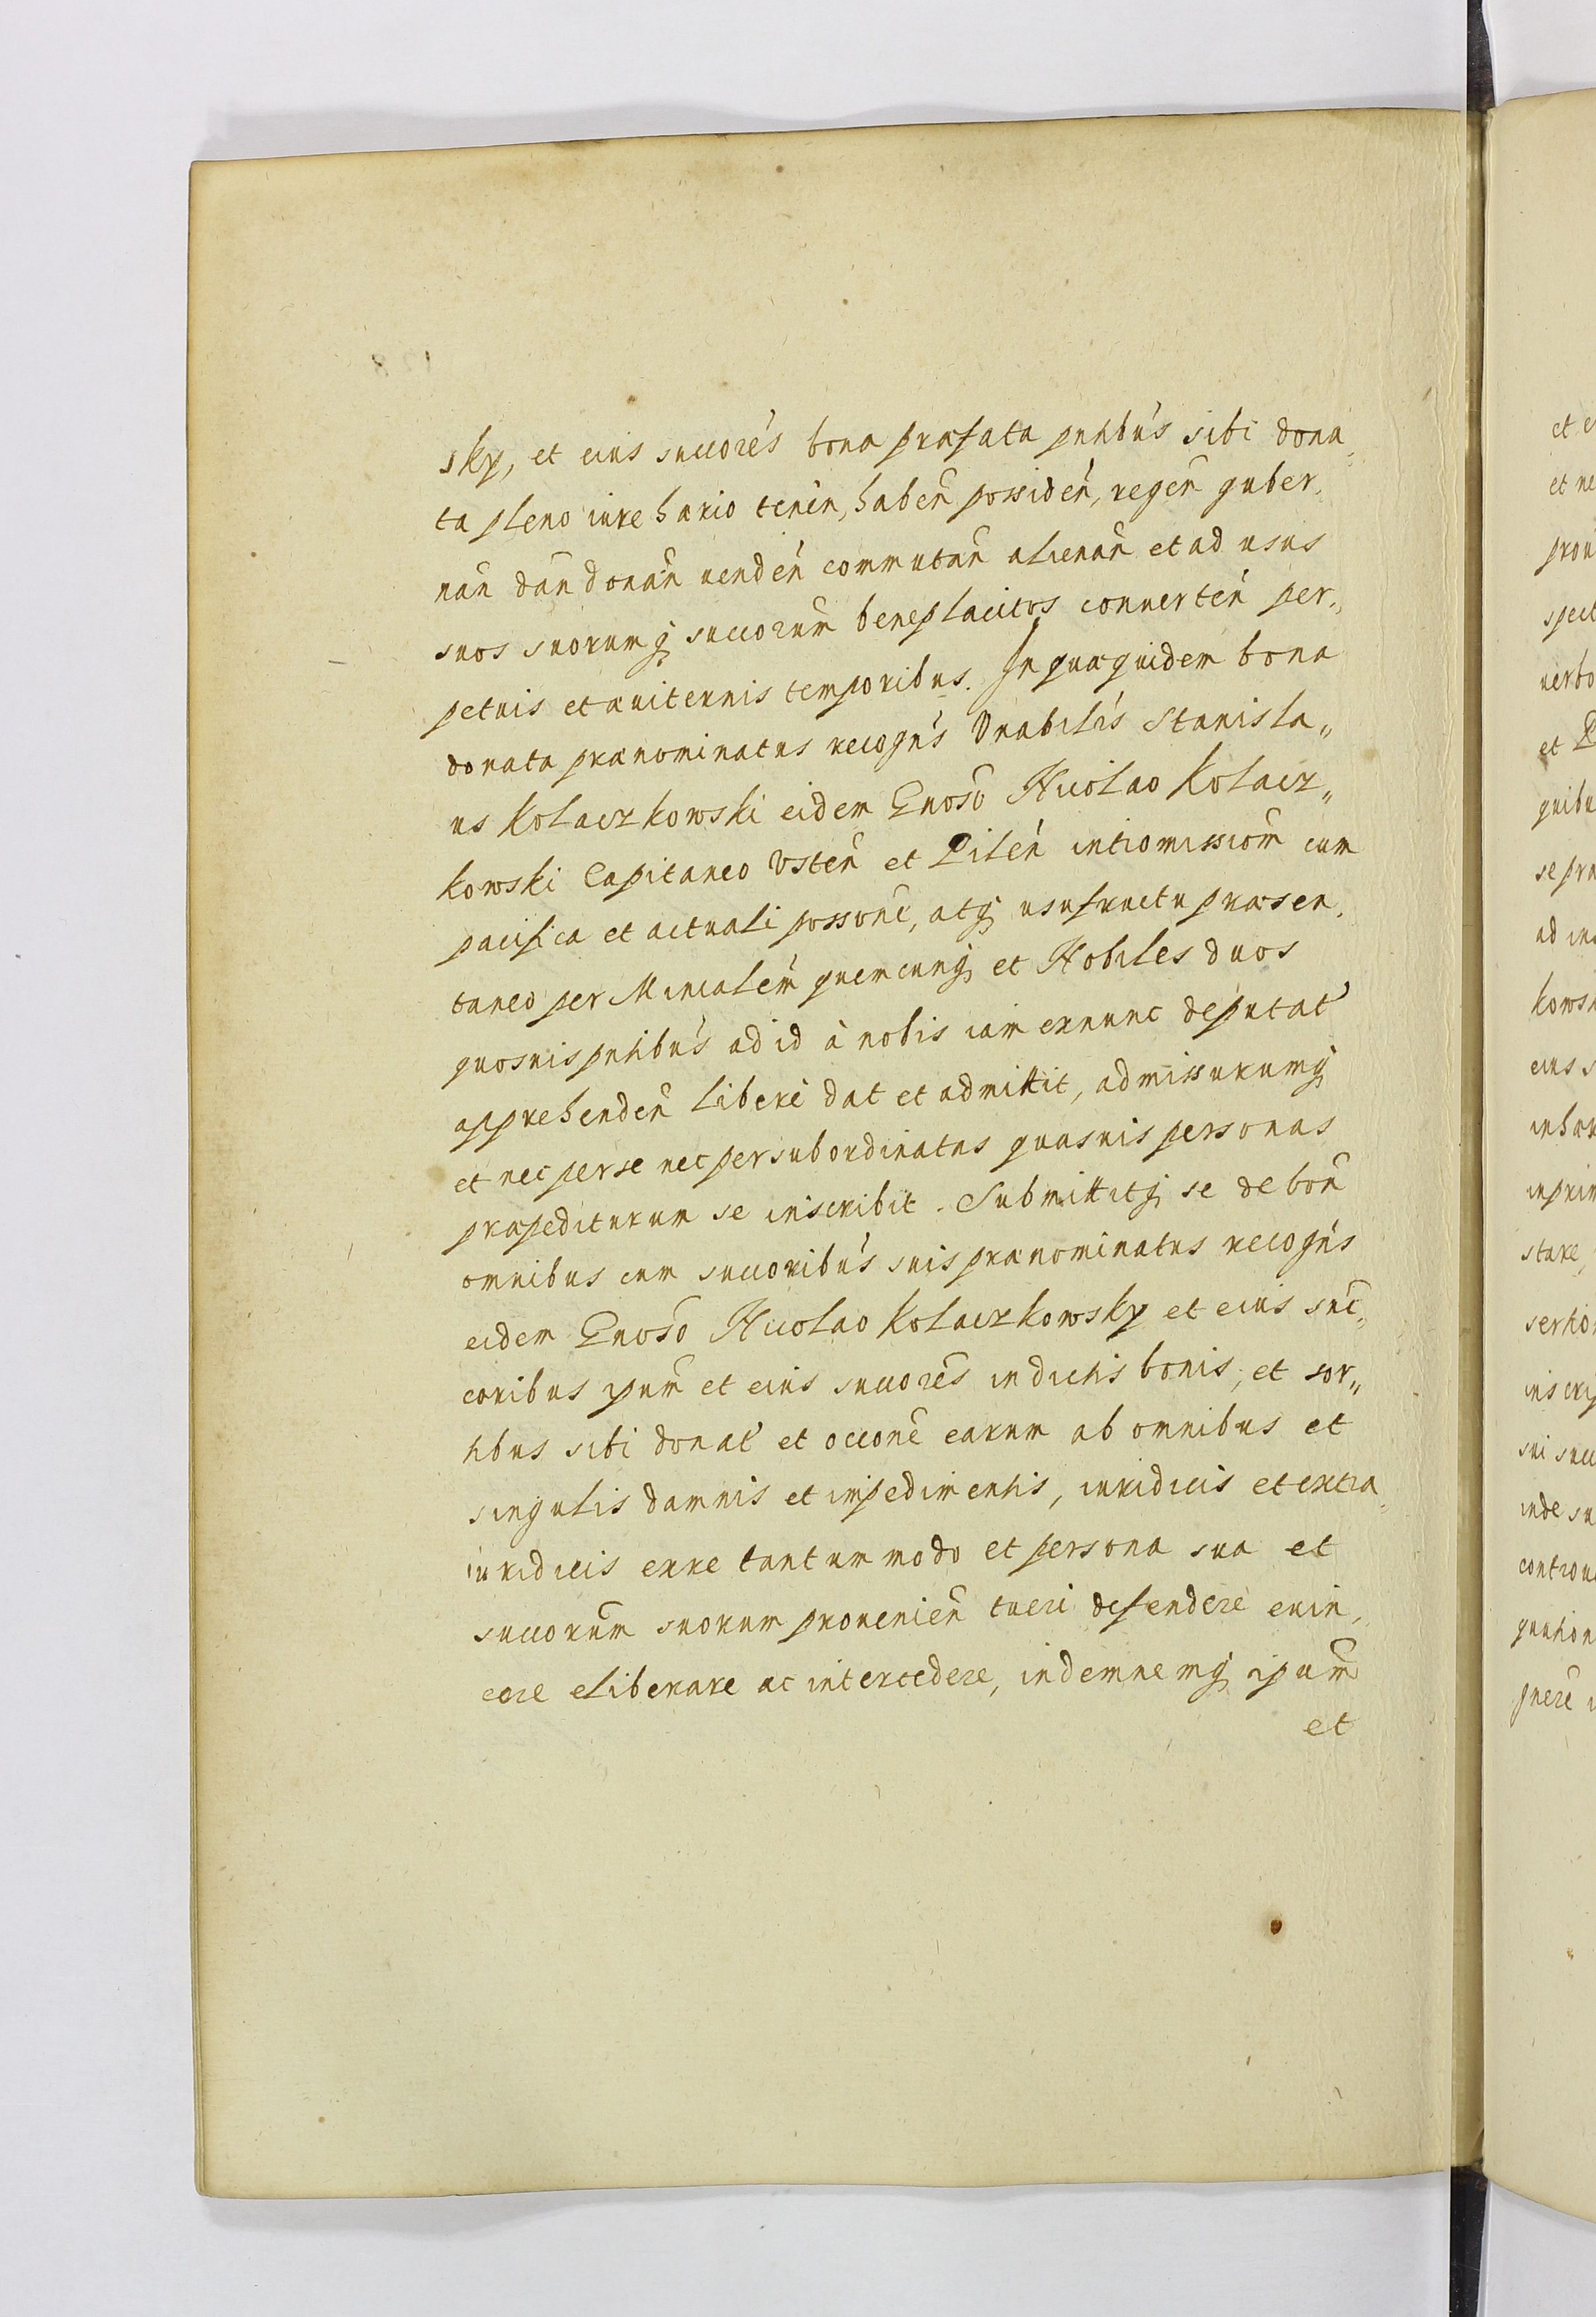 sky, et eius succores bona præfata pntibus sibi dona„
ta pleno iure hario tenen, haben possiden, regen guber„
nan dan donan venden commutan alienan et ad usus
suos suorumq succorum beneplacitos conuerten per„
petuis et æuiternis temporibus. In quæquidem bona
donata prænominatus recogns Vnabilis Stanisla„
us Kołaczkowski eidem Gnoso Nicolao Kołacz„
kowski Capitaneo Vsten et Pilen intromissiom cum
pacifica et actuali possone, atq usufructu præsen„
taneo per Mincalem quemcunq et Nobiles duos
quosuis pntibus ad id à nobis iam exnunc deputat
apprehenden liberè dat et admittit, admissurumq
et nec per se nec per subordinatas quasuis personas
præpediturum se inscribit. Submittitq se de bon
omnibus cum succoribus suis prænominatus recogns
eidem Gnoso Nicolao Kołaczkowsky et eius suc„
coribus ipum et eius succores in dictis bonis, et sor„
tibus sibi donat et occone earum ab omnibus et
singulis damnis et impedimentis, iuridicis et extra„
iuridicis exre tantummodo et persona sua et
succorum suorum prouenien tueri defendere euin„
cere eliberare ac intercedere, indemnemq ipum
et